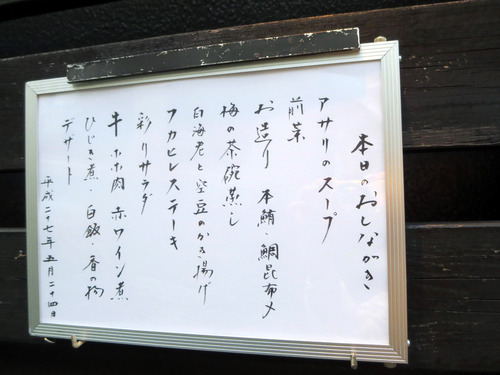 本日のおしながき
アサリのスープ
前菜
お造り 本鮪・鯛昆布〆
梅の茶碗蒸し
白海老と空豆のかき揚げ
フカヒレステーキ
彩りサラダ
牛ホホ肉 赤ワイン煮
ひじき煮・白飯・香の物
デザート
平成二十七年五月二十四日